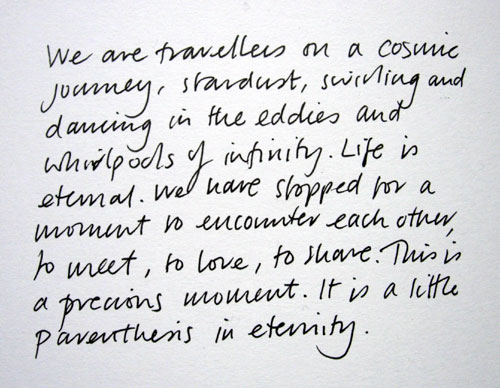 We are travellers on a cosmic
journey, stardust, swirling and
dancing in the eddies and
whirlpools of infinity. Life is
eternal. We have stopped for a
moment to encounter each other,
to meet, to love, to share. This is
a precious moment. It is a little
parenthesis in eternity.